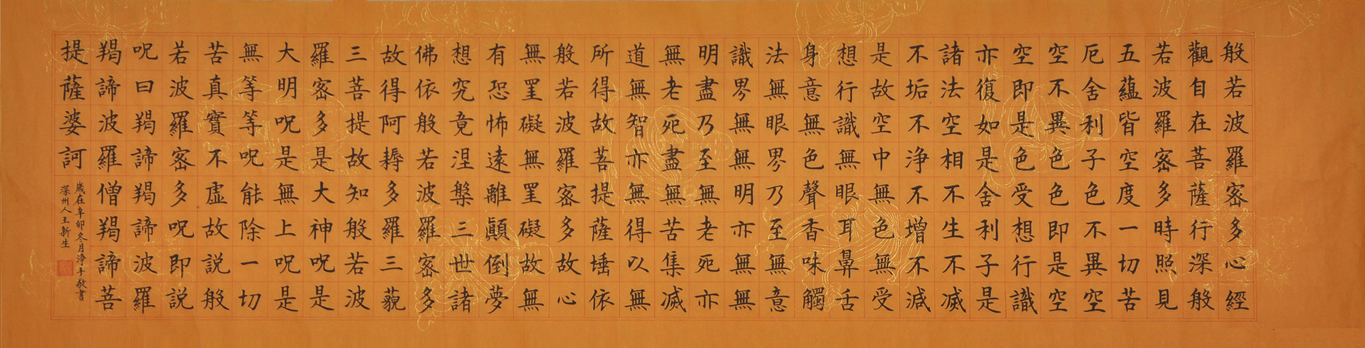 般若波羅密多心經
觀自在菩薩行深般
若波羅密多時照見
五蘊皆空度一切苦
厄舍利子色不異空
空不異色色即是空
空即是色受想行識
亦復如是舍利子是
諸法空相不生不滅
不垢不浄不增不減
是故空中無色無受
想行識無眼耳鼻舌
身意無色聲香味觸
法無眼界乃至無意
識界無無明亦無無
明盡乃至無老死亦
無老死盡無苦集滅
道無智亦無得以無
所得故菩提薩埵依
般若波羅密多故心
無罣礙無罣礙故無
有恐怖遠離顛倒夢
想究竟涅槃三世諸
佛依般若波羅密多
故得阿耨多羅三藐
三菩提故知般若波
羅密多是大神呪是
大明呪是無上呪是
無等等呪能除一切
苦真實不虛故説般
若波羅密多呪即説
呪曰羯諦羯諦波羅
羯諦波羅僧羯諦菩
提薩婆訶
歲在辛卯冬月浄手敬書
深州人王新生